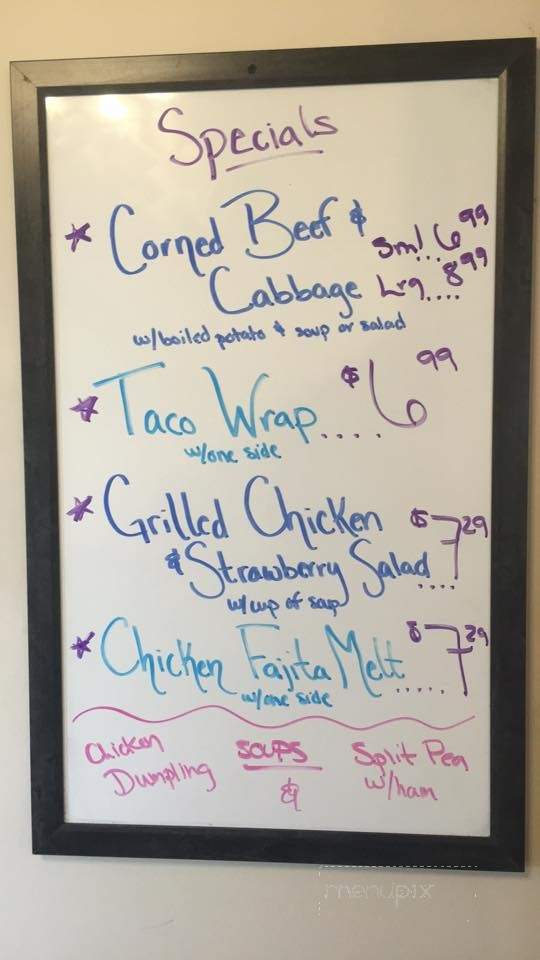 Specials
Corned Beef & Sml...6.99
Cabbage Lrg....8.99
w/boiled potato & soup or salad
Taco Wrap....$6.99
w/one side
Grilled Chicken
& Strawberry Salad....$7.29
w/cup of soup
Chicken Fajita Melt.....$7.29
w/one side
Chicken Dumpling
SOUPS
&
Split Pea w/ham
menupix